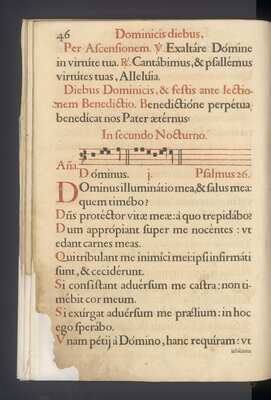 46 Dominicis diebus,
Per Ascensionem. ℣. Exaltáre Dómine
in virtúte tua. ℟. Cantábimus, & psallémus
virtútes tuas, Allelúia.
Diebus Dominicis, & festis ante lectio-
nem Benedictio. Benedictióne perpétua
benedícat nos Pater ætérnus.
In secundo Nocturno.
Aña. Dóminus. j. Psalmus 26.
Dominus illuminátio mea, & salus mea:
quem timébo?
Dñs protéctor vitæ meæ: à quo trepidábo?
Dum apprópiant super me nocéntes: vt
edant carnes meas.
Qui tríbulant me inimíci mei: ipsi infirmáti
sunt, & cecidérunt.
Si consístant advérsum me castra: non ti-
mébit cor meum.
Si exúrgat advérsum me prælium: in hoc
ego sperábo.
Vnam pétij à Dómino, hanc requíram: vt